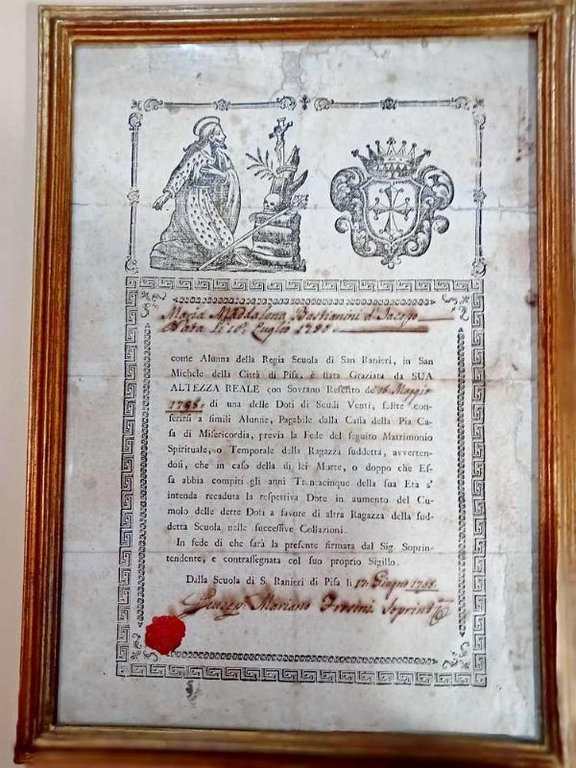 Maria Maddalena Bastianini d'Jacopo
Nata li Luglio
come Alunna della Regia Scuola di San Ranieri, in San
Michele della Città di Pisa, è stata Graziata da SUA
ALTEZZA REALE con Sovrano Rescritto de' 16. Maggio
di una delle Doti di Scudi Venti, solite con-
ferirsi a simili Alunne, Pagabile dalla Cassa della Pia Ca-
sa di Misericordia, previa la Fede del seguito Matrimonio
Spirituale, o Temporale della Ragazza suddetta, avverten-
dosi, che in caso della di lei Morte, o doppo che Es-
sa abbia compiti gli anni Trentacinque della sua Età s'
intenda recaduta la respettiva Dote in aumento del Cu-
molo delle dette Doti a favore di altra Ragazza della sud-
detta Scuola nelle successive Collazioni.
In fede di che sarà la presente firmata dal Sig. Soprin-
tendente, e contrassegnata col suo proprio Sigillo.
Dalla Scuola di S. Ranieri di Pisa li Giugno
Mariano Soprint